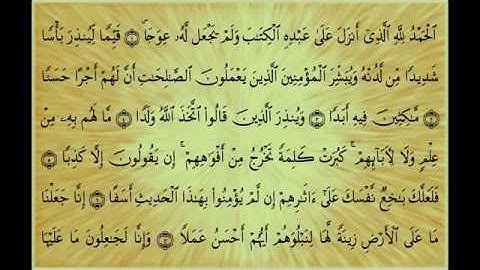 ٱلْحَمْدُ لِلَّهِ ٱلَّذِىٓ أَنزَلَ عَلَىٰ عَبْدِهِ ٱلْكِتَـٰبَ وَلَمْ يَجْعَل لَّهُۥ عِوَجَا ۜ ۝١ قَيِّمًا لِّيُنذِرَ بَأْسًا
شَدِيدًا مِّن لَّدُنْهُ وَيُبَشِّرَ ٱلْمُؤْمِنِينَ ٱلَّذِينَ يَعْمَلُونَ ٱلصَّـٰلِحَـٰتِ أَنَّ لَهُمْ أَجْرًا حَسَنًا
۝٢ مَّـٰكِثِينَ فِيهِ أَبَدًا ۝٣ وَيُنذِرَ ٱلَّذِينَ قَالُوا۟ ٱتَّخَذَ ٱللَّهُ وَلَدًا ۝٤ مَّا لَهُم بِهِۦ مِنْ
عِلْمٍ وَلَا لِـَٔابَآئِهِمْ ۚ كَبُرَتْ كَلِمَةً تَخْرُجُ مِنْ أَفْوَٰهِهِمْ ۚ إِن يَقُولُونَ إِلَّا كَذِبًا ۝٥
فَلَعَلَّكَ بَـٰخِعٌ نَّفْسَكَ عَلَىٰٓ ءَاثَـٰرِهِمْ إِن لَّمْ يُؤْمِنُوا۟ بِهَـٰذَا ٱلْحَدِيثِ أَسَفًا ۝٦ إِنَّا جَعَلْنَا
مَا عَلَى ٱلْأَرْضِ زِينَةً لَّهَا لِنَبْلُوَهُمْ أَيُّهُمْ أَحْسَنُ عَمَلًا ۝٧ وَإِنَّا لَجَـٰعِلُونَ مَا عَلَيْهَا